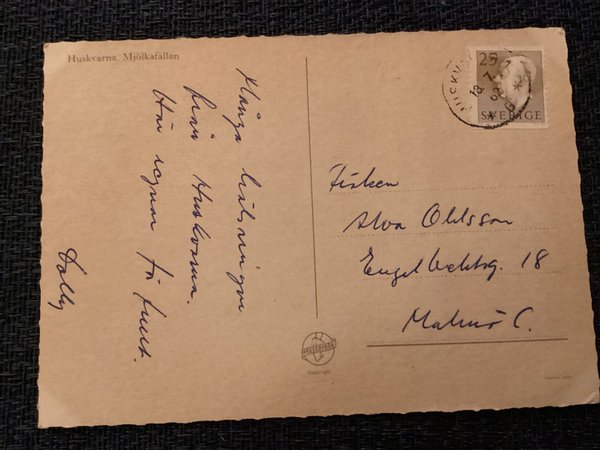 Huskvarna. Mjölkafallan
Många hälsningar
från Huskvarna.
Här regnar för fullt.
Dolly
25
SVERIGE
Fröken
Alva Ohlsson
Engelbektsg. 18
Malmö C.